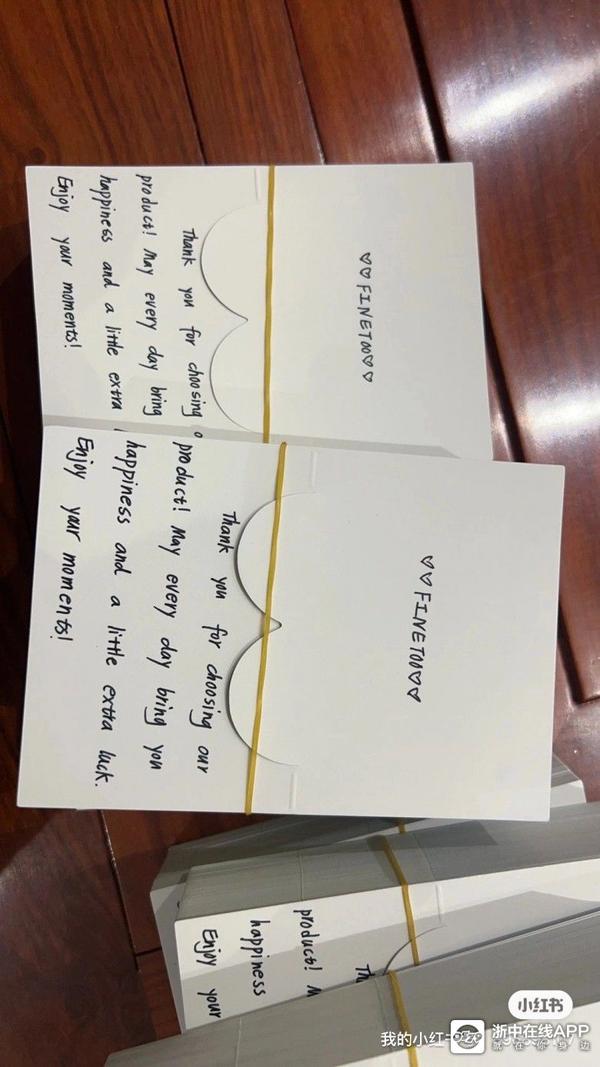 ♡♡FINETOO♡♡
Thank you for choosing
product! May every day bring
happiness and a little extra
Enjoy your moments!
♡♡FINETOO♡♡
Thank you for choosing our
product! May every day bring you
happiness and a little extra luck.
Enjoy your moments!
Th
product! M
happiness
Enjoy your
小红书
我的小红书
浙中在线APP
就在你身边